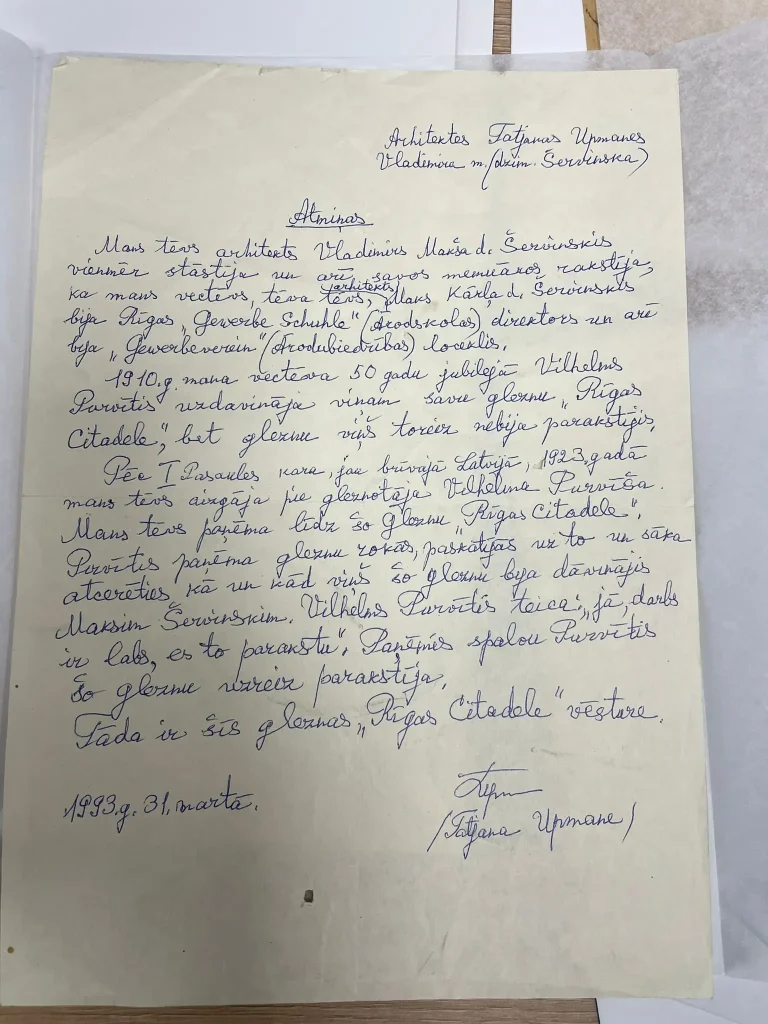 Arhitektes Tatjanas Upmanes
Vladimira m. (dzim. Šervinska)
Atmiņas
Mans tēvs arhitekts Vladimirs Makša d. Šervinskis
vienmēr stāstīja un arī savos memuāros rakstīja,
ka mans vectēvs, tēva tēvs, arhitekts Maks Kārļa d. Šervinskis
bija Rīgas „Gewerbe Schuhle" (Arodskolas) direktors un arī
bija „Gewerbeverein" (Arodubiedrības) loceklis.
1910.g. mana vectēva 50 gadu jubilejā Vilhelms
Purvītis uzdavināja viņam savu gleznu „Rīgas
Citadele", bet gleznu viņš toreiz nebija parakstījis.
Pēc I Pasaules kara, jau brīvajā Latvijā, 1923.gadā
mans tēvs aizgāja pie gleznotāja Vilhelma Purvīša.
Mans tēvs paņēma līdz šo gleznu „Rīgas Citadele".
Purvītis paņēma gleznu rokās, paskatījās uz to un sāka
atcerēties kā un kad viņš šo gleznu bija dāvinājis
Maksim Šervinskim. Vilhelms Purvītis teica: „jā, darbs
ir labs, es to parakstu". Paņēmis spalvu Purvītis
šo gleznu uzreiz parakstīja.
Tāda ir šīs gleznas „Rīgas Citadele" vēsture.
1993.g. 31. martā.
(Tatjana Upmane)